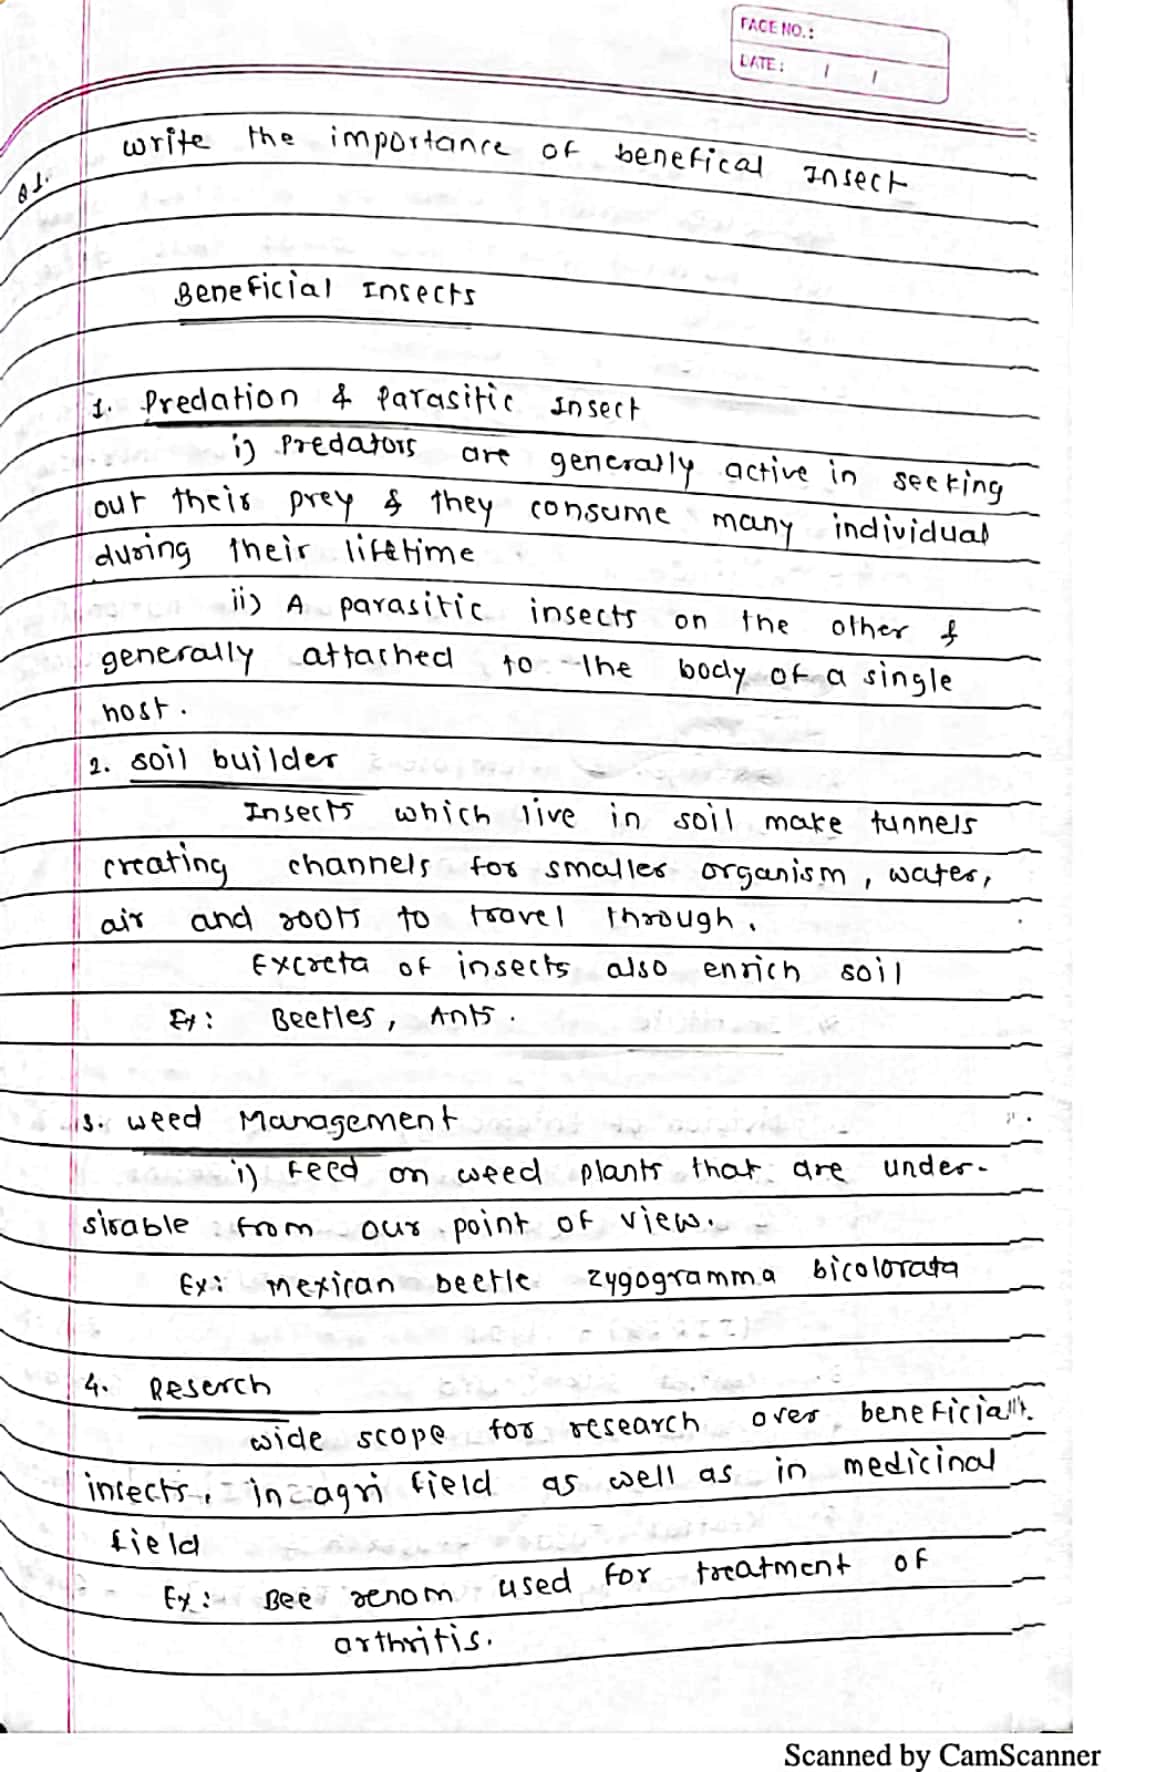 PAGE NO.:
DATE: / /
Q1. write the importance of benefical Insect
Beneficial Insects
1. Predation & Parasitic Insect
i) Predators are generally active in seeking
out their prey & they consume many individual
during their lifetime
ii) A parasitic insects on the other &
generally attached to the body of a single
host.
2. soil builder
Insects which live in soil make tunnels
creating channels for smaller organism, water,
air and roots to travel through.
Excreta of insects also enrich soil
Ex: Beetles, Ants.
3. weed Management
i) Feed on weed plants that are under-
sirable from our point of view.
Ex: mexican beetle zygogramma bicolorata
4. Reserch
wide scope for research over beneficial
insects, in agri field as well as in medicinal
field
Ex: Bee venom used for treatment of
arthritis.
Scanned by CamScanner